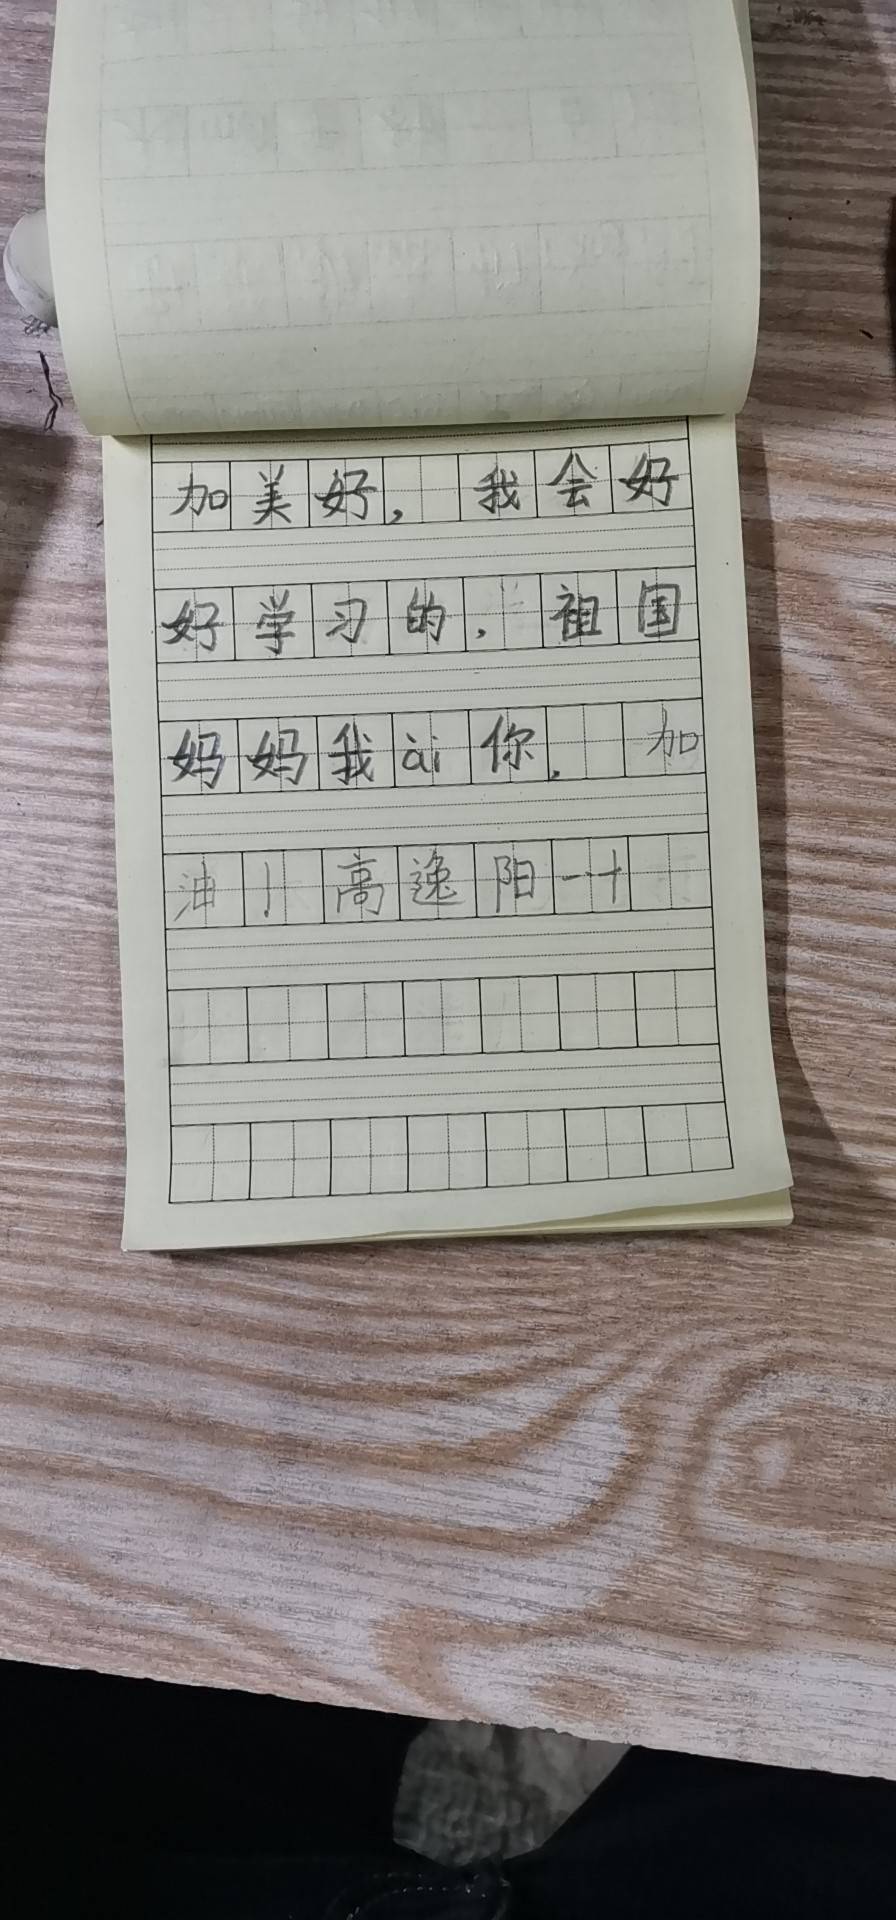 加美好，我会好
好学习的，祖国
妈妈我ài你．加
油！高逸阳